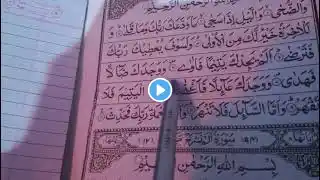 بِسْمِ اللهِ الرَّحْمٰنِ الرَّحِيْمِ
وَالضُّحٰى وَالَّيْلِ اِذَا سَجٰى مَا وَدَّعَكَ رَبُّكَ وَمَا قَلٰى
وَلَلْاٰخِرَةُ خَيْرٌ لَّكَ مِنَ الْاُوْلٰى وَلَسَوْفَ يُعْطِيْكَ رَبُّكَ
فَتَرْضٰى اَلَمْ يَجِدْكَ يَتِيْمًا فَاٰوٰى وَوَجَدَكَ ضَآلًّا
فَهَدٰى وَوَجَدَكَ عَآئِلًا الْيَتِيْمَ فَلَا
وَاَمَّا السَّآئِلَ فَلَا تَنْهَرْ رَبِّكَ فَحَدِّثْ
سُوْرَةُ
بِسْمِ اللهِ الرَّحْمٰنِ الرَّحِيْمِ